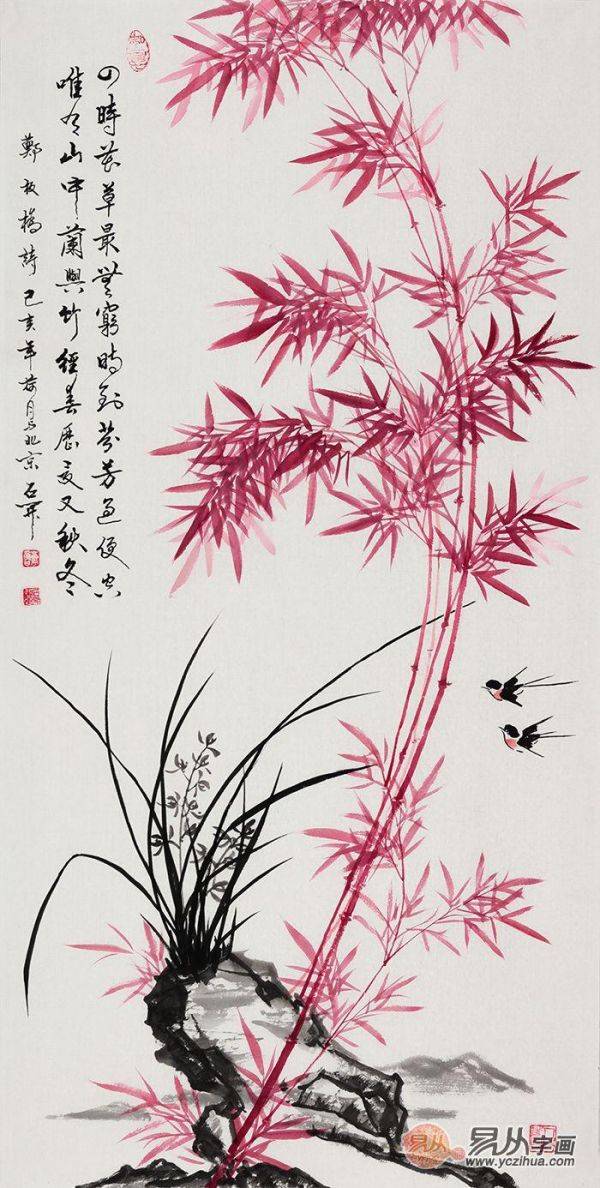 四時花草最無窮時到芬芳過便空
唯有山中蘭與竹經春歷夏又秋冬
鄭板橋詩 己亥年荷月於北京 石开
易从
易从字画
www.yczihua.com